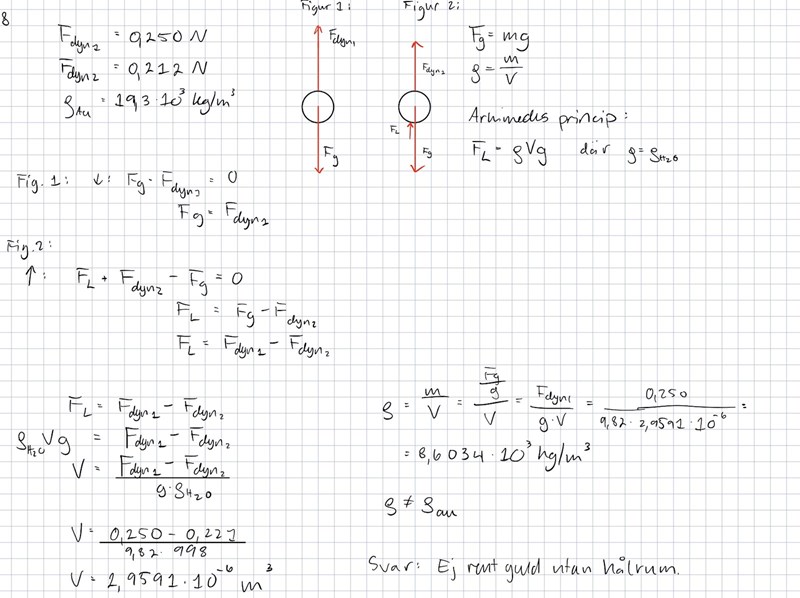 8
F_dyn₁ = 0,250 N
F_dyn₂ = 0,212 N
ρ_Au = 19,3·10³ kg/m³
Figur 1:
F_dyn₁
F_g
Figur 2:
F_dyn₂
F_L
F_g
F_g = mg
ρ = m/V
Arkimedes princip:
F_L = ρVg där ρ = ρ_H₂O
Fig. 1: ↓: F_g - F_dyn₁ = 0
F_g = F_dyn₁
Fig. 2:
↑: F_L + F_dyn₂ - F_g = 0
F_L = F_g - F_dyn₂
F_L = F_dyn₁ - F_dyn₂
F_L = F_dyn₁ - F_dyn₂
ρ_H₂O Vg = F_dyn₁ - F_dyn₂
V = (F_dyn₁ - F_dyn₂)/(g·ρ_H₂O)
V = (0,250 - 0,221)/(9,82·998)
V = 2,9591·10⁻⁶ m³
ρ = m/V = (F_g/g)/V = F_dyn₁/(g·V) = 0,250/(9,82·2,9591·10⁻⁶) =
= 8,6034·10³ kg/m³
ρ ≠ ρ_au
Svar: Ej rent guld utan hålrum.